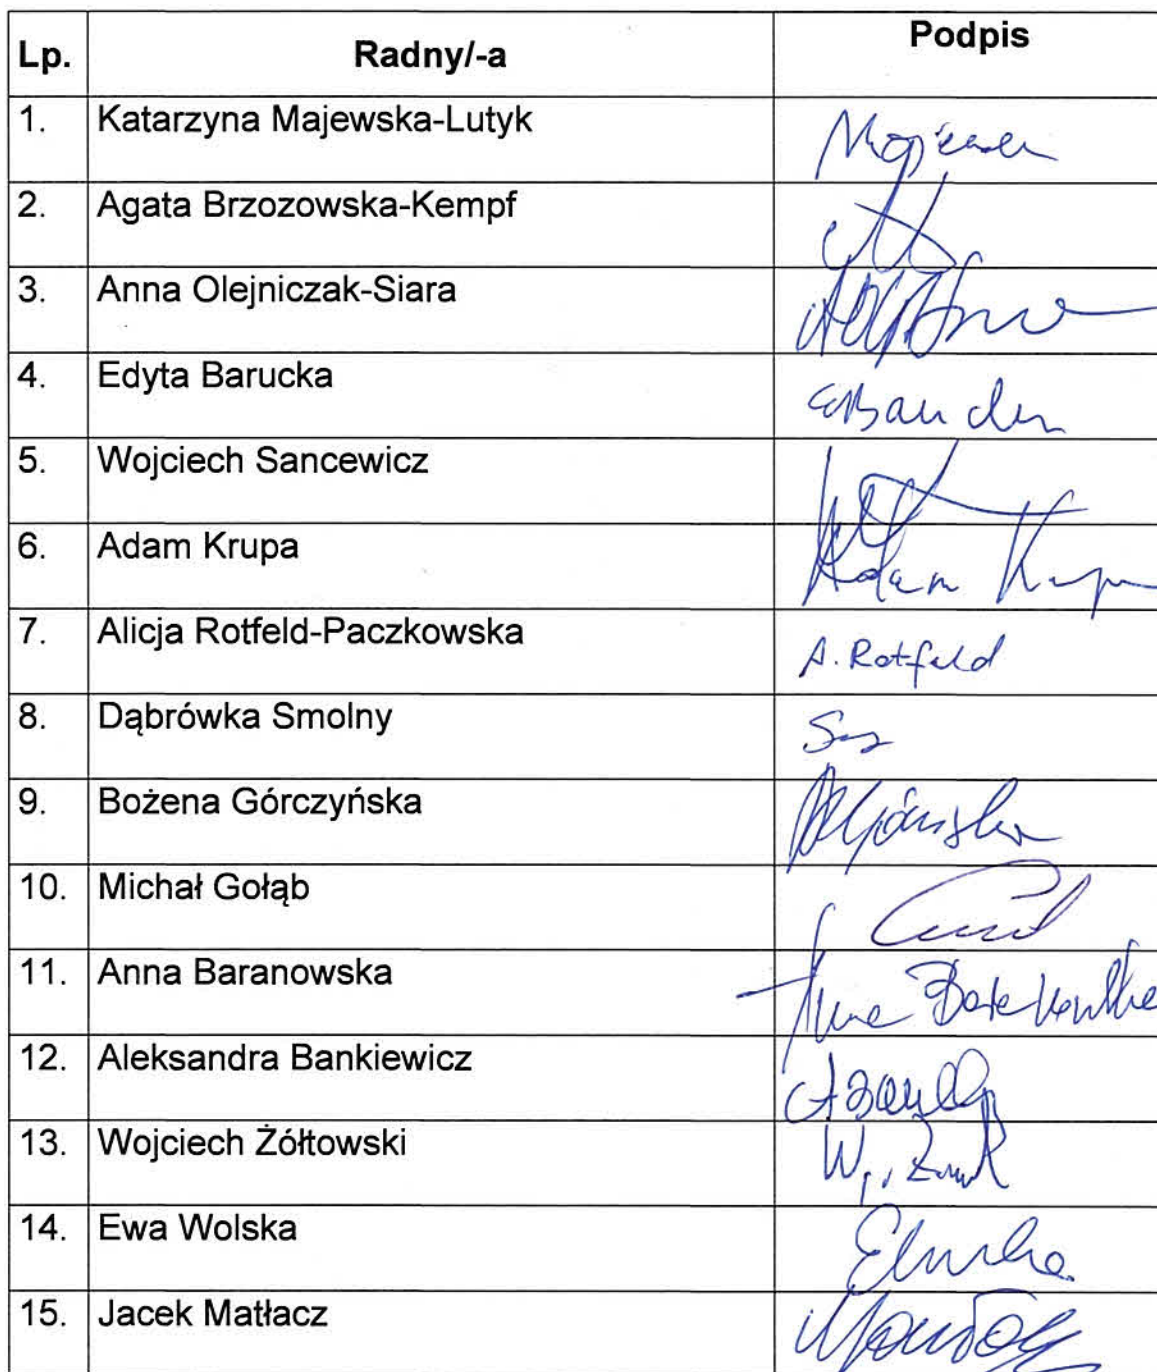 Lp. Radny/-a Podpis
1. Katarzyna Majewska-Lutyk
2. Agata Brzozowska-Kempf
3. Anna Olejniczak-Siara
4. Edyta Barucka
5. Wojciech Sancewicz
6. Adam Krupa Adam Krupa
7. Alicja Rotfeld-Paczkowska A. Rotfeld
8. Dąbrówka Smolny
9. Bożena Górczyńska
10. Michał Gołąb
11. Anna Baranowska
12. Aleksandra Bankiewicz
13. Wojciech Żółtowski
14. Ewa Wolska
15. Jacek Matłacz